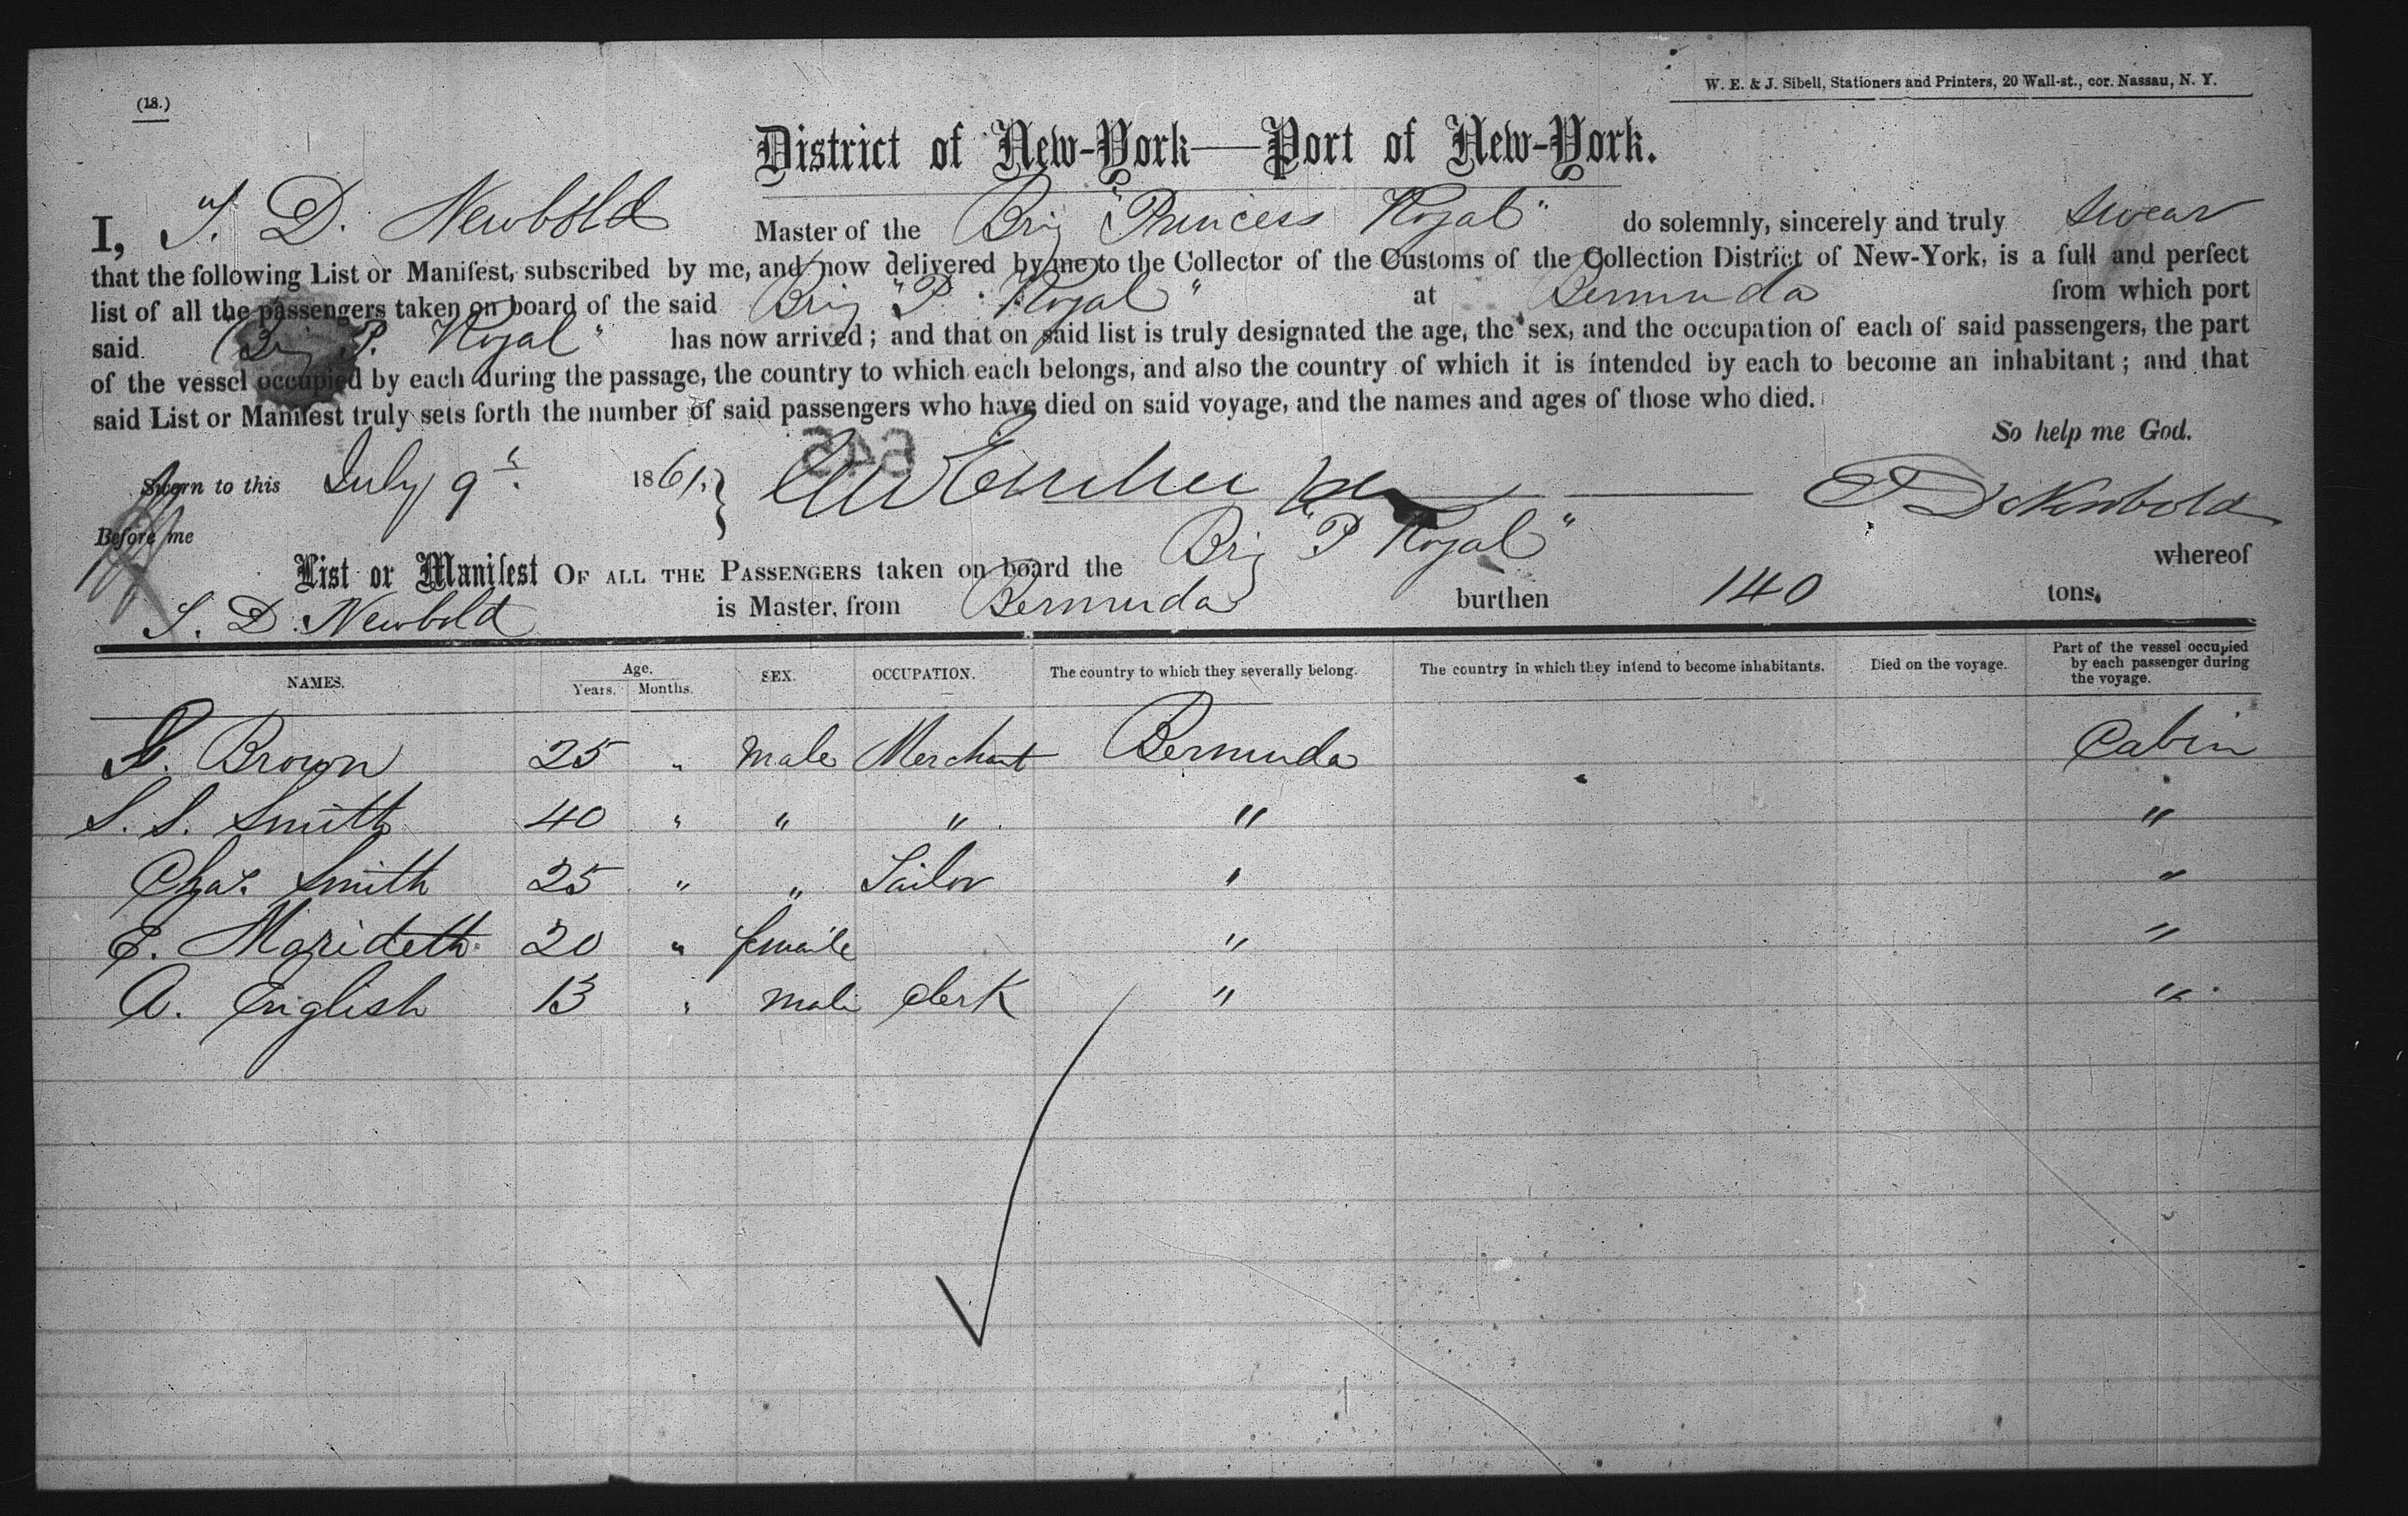 (18.)
W. E. & J. Sibell, Stationers and Printers, 20 Wall-st., cor. Nassau, N. Y.
District of New-York—Port of New-York.
I, T. D. Newbold Master of the Brig "Princess Royal" do solemnly, sincerely and truly swear
that the following List or Manifest, subscribed by me, and now delivered by me to the Collector of the Customs of the Collection District of New-York, is a full and perfect
list of all the passengers taken on board of the said Brig "P. Royal" at Bermuda from which port
said Brig P. Royal" has now arrived; and that on said list is truly designated the age, the sex, and the occupation of each of said passengers, the part
of the vessel occupied by each during the passage, the country to which each belongs, and also the country of which it is intended by each to become an inhabitant; and that
said List or Manifest truly sets forth the number of said passengers who have died on said voyage, and the names and ages of those who died.
So help me God.
Sworn to this July 9th 1861. } T D Newbold
Before me
List or Manifest OF ALL THE PASSENGERS taken on board the Brig "P Royal" whereof
T. D. Newbold is Master, from Bermuda burthen 140 tons.
NAMES. Age. Years. Months. SEX. OCCUPATION. The country to which they severally belong. The country in which they intend to become inhabitants. Died on the voyage. Part of the vessel occupied by each passenger during the voyage.
Brown 25 " male Merchant Bermuda Cabin
S. S. Smith 40 " " " " "
Chas. Smith 25 " " Sailor " "
E. Marideth 20 " female " "
A. English 13 " male Clerk " "